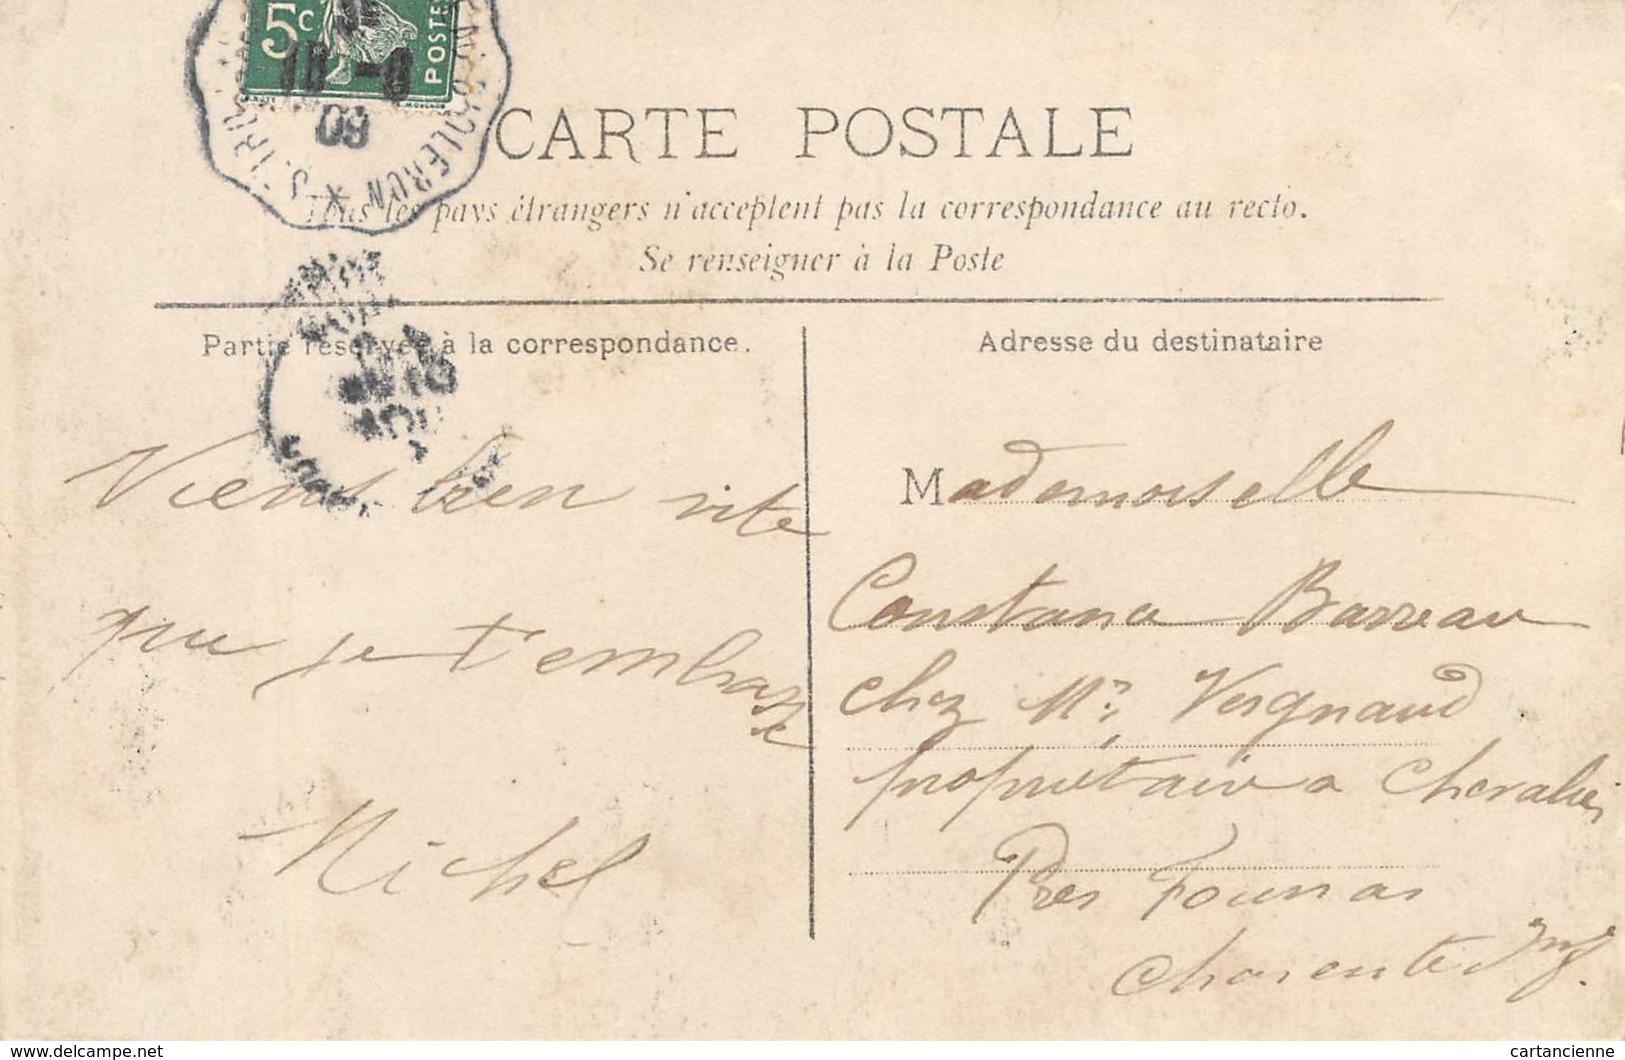 5c
POSTES
10 - 9
09
CARTE POSTALE
Tous les pays étrangers n'acceptent pas la correspondance au recto.
Se renseigner à la Poste
Partie réservée à la correspondance.
Viens bien vite
que je t'embrasse
Michel
Adresse du destinataire
Mademoiselle
Constance Barreau
chez Mr Vergnaud
propriétaire a Chevalier
Près Fouras
Charente Inf.
www.delcampe.net
cartancienne